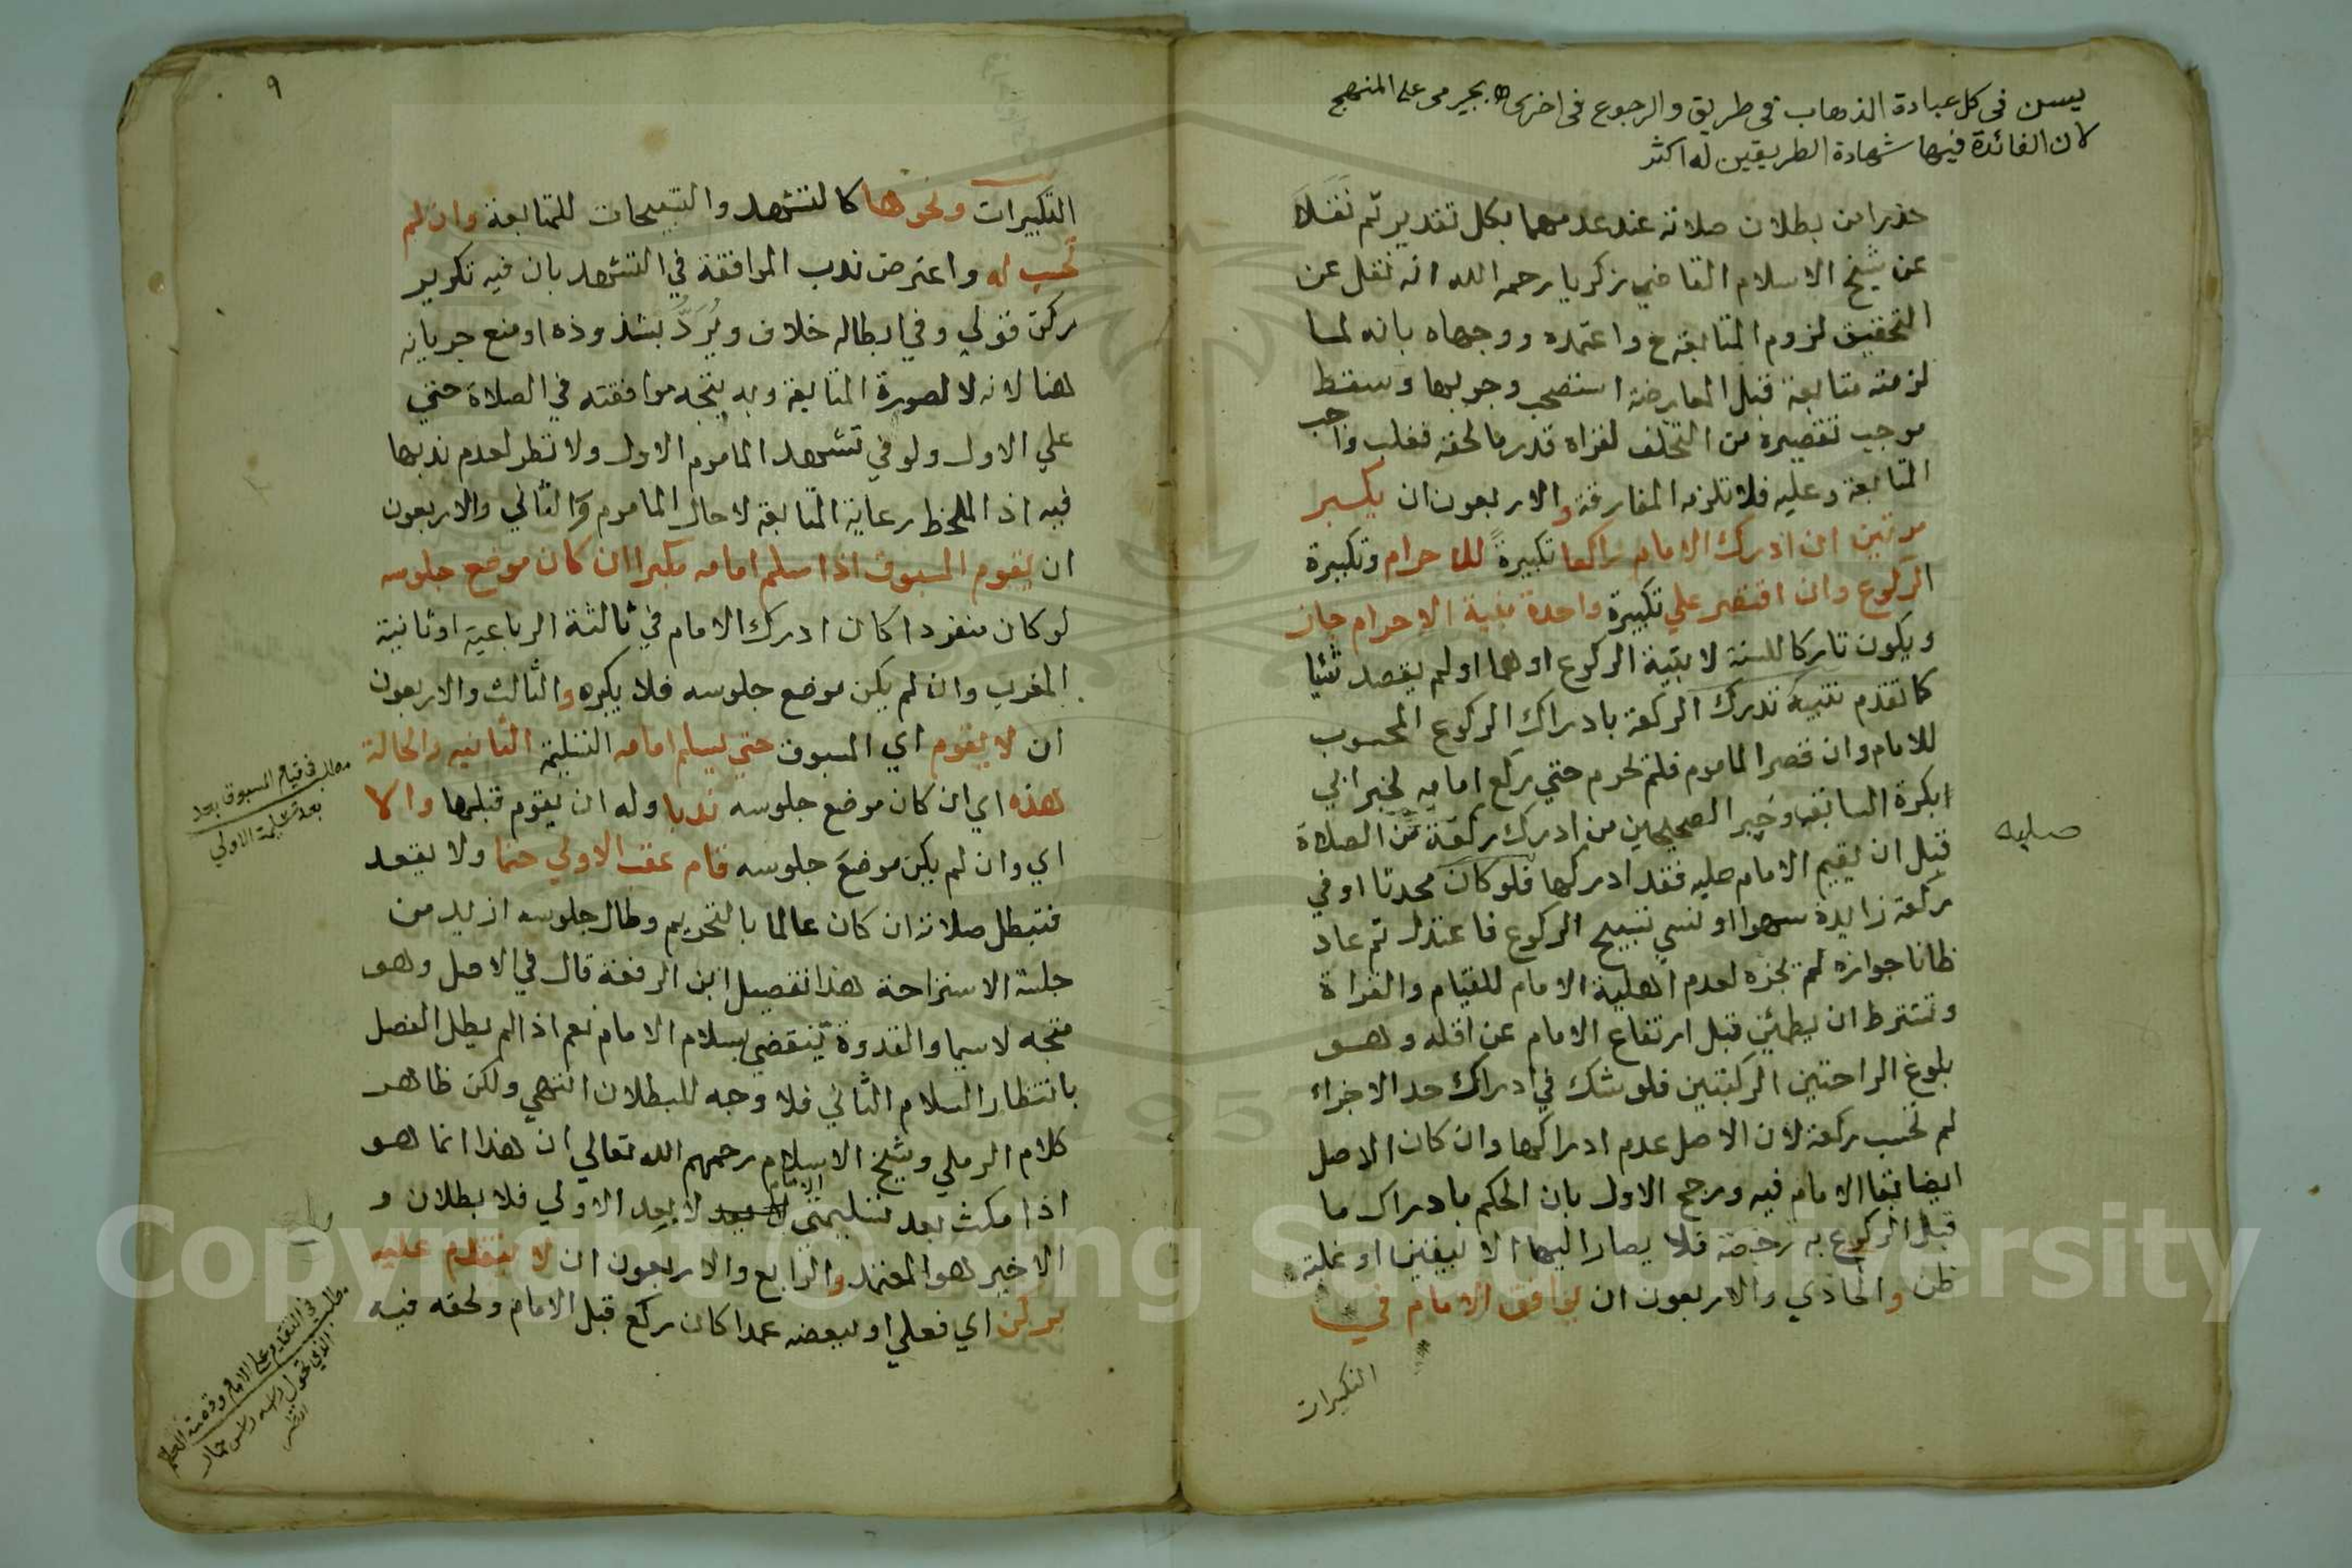 يسن في كل عبادة الذهاب في طريق والرجوع في اخرى اه بجيرمي على المنهج
لان الفائدة فيها شهادة الطريقين له اكثر
حذرا من بطلان صلاته عند عدمهما بكل تقدير ثم نقلا
عن شيخ الاسلام القاضي زكريا رحمه الله انه نقل عن
التحقيق لزوم المتابعة ح واعتمده ووجهاه بانه لما
لزمته متابعة قبل المعارضة استصحب وجوبها وسقط
موجب تقصيره من التخلف لقراة قدر ما لحقه فغلب واجب
المتابعة وعليه فلا تلزمه المفارقة والاربعون ان يكبر
مرتين ان ادرك الامام راكعا تكبيرةً للاحرام وتكبيرة
الركوع وان اقتصر علي تكبيرة واحدة بنية الاحرام جاز
ويكون تاركا للسنة لا بنية الركوع او هما او لم يقصد شئيا
كما تقدم تنبيه تدرك الركعة بادراك الركوع المحسوب
للامام وان قصر الماموم فلم يحرم حتي ركع امامه لخبر ابي
ابكرة السابق وخبر الصحيحين من ادرك ركعة من الصلاة
قبل ان يقيم الامام صلبه فقد ادركها فلو كان محدثا او في
ركعة زايدة سهوا او نسي تسبيح الركوع فاعتدل ثم عاد
ظانا جوازه لم تجزه لعدم اهلية الامام للقيام والقراة
وتشترط ان يطمئن قبل ارتفاع الامام عن اقله وهو
بلوغ الراحتين الركبتين فلو شك في ادراك حد الاجزاء
لم تحسب ركعة لان الاصل عدم ادراكها وان كان الاصل
ايضا بقا الامام فيه ورجح الاول بان الحكم بادراك ما
قبل الركوع به رخصة فلا يصار اليها الا بيقين او غلبة
ظن والحادي والاربعون ان يوافق الامام في
التكبيرات
صلبه
٩
التكبيرات ونحوها كالتشهد والتسبيحات للمتابعة وان لم
تحسب له واعترض ندب الموافقة في التشهد بان فيه تكرير
ركن قولي وفي ابطاله خلاف ويُرَدُّ بشذوذه او منع جريانه
هنا لانه لالصورة المتابعة وبه يتجه موافقته في الصلاة حتي
علي الاول ولو في تشهد الماموم الاول ولا نظر لعدم ندبها
فيه اذ الملحظ رعاية المتابعة لا حال الماموم والثاني والاربعون
ان يقوم المسبوق اذا سلم امامه مكبرا ان كان موضع جلوسه
لو كان منفردا كان ادرك الامام في ثالثة الرباعية او ثانية
المغرب وان لم يكن موضع جلوسه فلا يكبره والثالث والاربعون
ان لا يقوم اي المسبوق حتي يسلم امامه التسليمة الثانيه والحالة
هذه اي ان كان موضع جلوسه ندبا وله ان يقوم قبلها والا
اي وان لم يكن موضعَ جلوسه قام عقب الاولي حتما ولا يقعد
فتبطل صلاته ان كان عالما بالتحريم وطال جلوسه ازيد من
جلسة الاستراحة هذا تفصيل ابن الرفعة قال في الاصل وهو
متجه لاسيما والقدوة تنقضي بسلام الامام نعم اذا لم يطل الفصل
بانتظار السلام الثاني فلا وجه للبطلان انتهي ولكن ظاهر
كلام الرملي وشيخ الاسلام رحمهم الله تعالي ان هذا انما هو
اذا مكث بعد تسليمتي الامام لا بعد الاولي فلا بطلان و
الاخير هو المعتمد والرابع والاربعون ان لا يتقدم عليه
بركن اي فعلي او ببعضه عمدا كان ركع قبل الامام ولحقه فيه
مطلب في قيام المسبوق بعد
بعد تسليمة الاولي
مطلب في التقدم على الامام وقصة
الذي تحول راسه راس حمار
انتظر